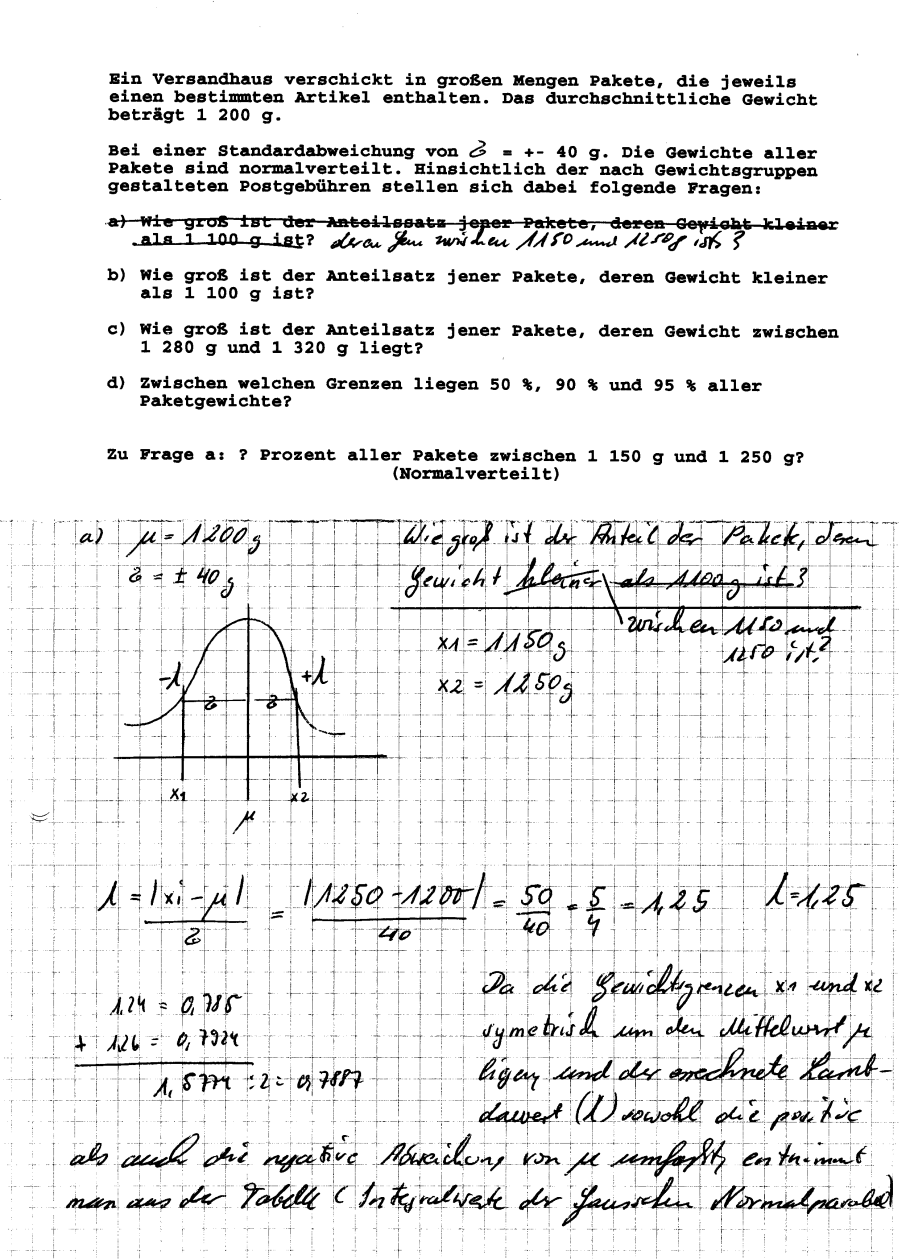 Ein Versandhaus verschickt in großen Mengen Pakete, die jeweils
einen bestimmten Artikel enthalten. Das durchschnittliche Gewicht
beträgt 1 200 g.
Bei einer Standardabweichung von σ = +- 40 g. Die Gewichte aller
Pakete sind normalverteilt. Hinsichtlich der nach Gewichtsgruppen
gestalteten Postgebühren stellen sich dabei folgende Fragen:
a) Wie groß ist der Anteilssatz jener Pakete, deren Gewicht kleiner
als 1 100 g ist? deren Gew zwischen 1150 und 1250g ist?
b) Wie groß ist der Anteilsatz jener Pakete, deren Gewicht kleiner
als 1 100 g ist?
c) Wie groß ist der Anteilsatz jener Pakete, deren Gewicht zwischen
1 280 g und 1 320 g liegt?
d) Zwischen welchen Grenzen liegen 50 %, 90 % und 95 % aller
Paketgewichte?
Zu Frage a: ? Prozent aller Pakete zwischen 1 150 g und 1 250 g?
(Normalverteilt)
a) μ = 1200 g
σ = ± 40 g
Wie groß ist der Anteil der Pakete, deren
Gewicht kleiner als 1100 g ist?
zwischen 1150 und
1250 ist?
x1 = 1150 g
x2 = 1250 g
-λ +λ
σ σ
x1 x2
μ
λ = |xi - μ| / σ = |1250 - 1200| / 40 = 50/40 = 5/4 = 1,25 λ = 1,25
1,24 = 0,785
+ 1,26 = 0,7924
1,5774 : 2 = 0,7887
Da die Gewichtsgrenzen x1 und x2
symetrisch um den Mittelwert μ
ligen, und der errechnete Lamb-
dawert (λ) sowohl die positive
als auch die negative Abweichung von μ umfaßt, entnimmt
man aus der Tabelle (Integralwerte der Gausschen Normalparabel)